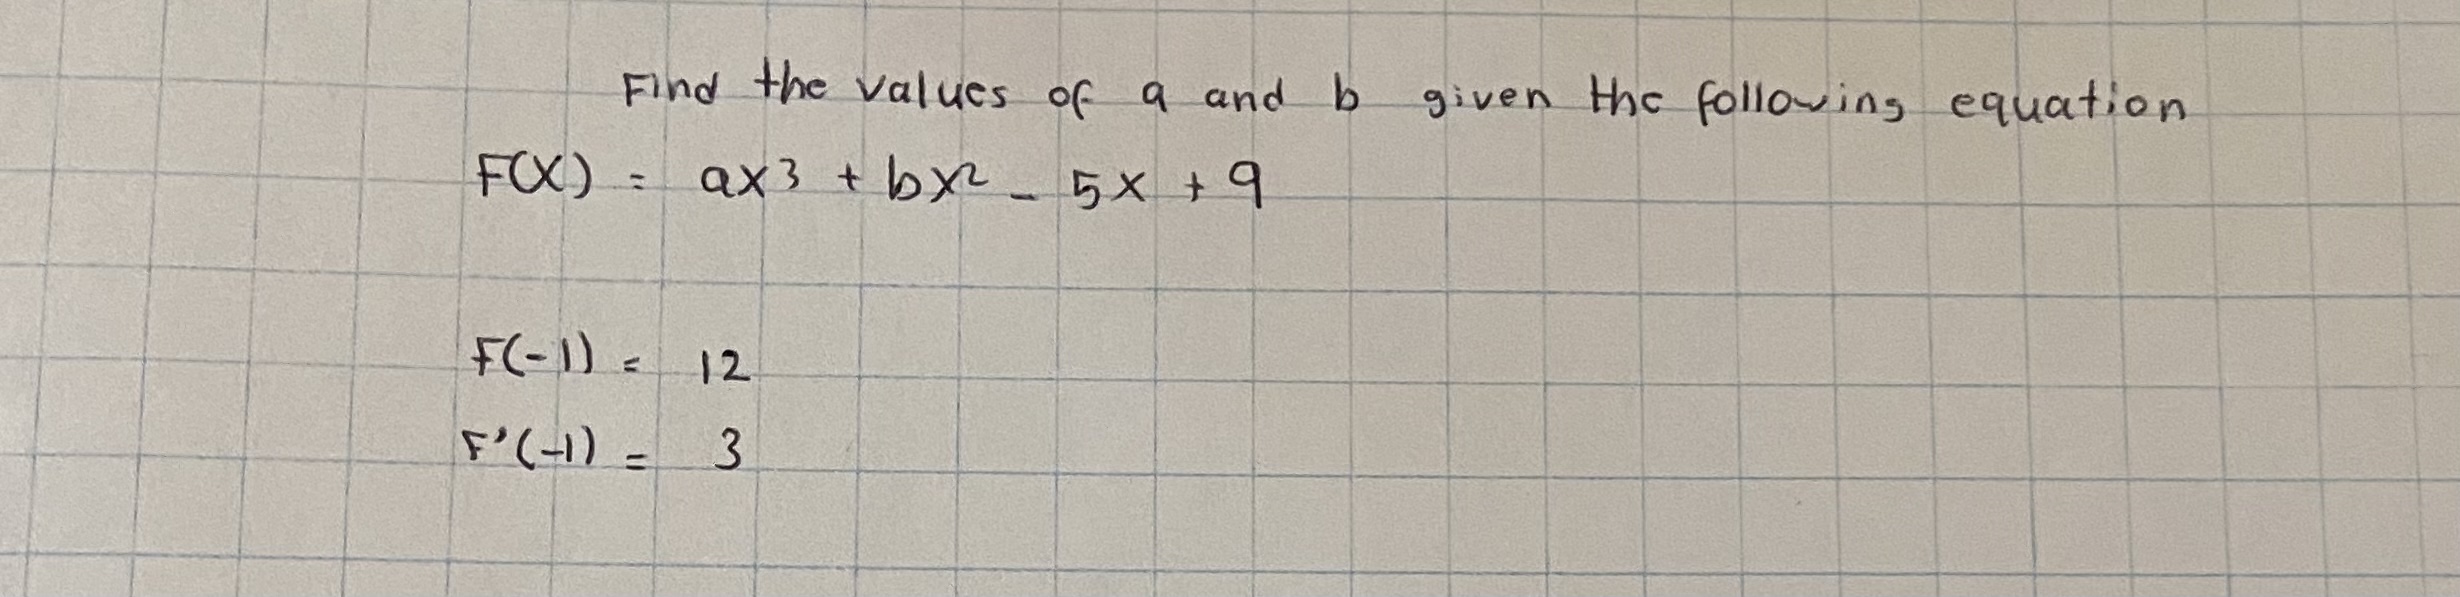 Find the values of a and b given the following equation
F(X) = ax³ + bx² - 5x + 9
F(-1) = 12
F'(-1) = 3